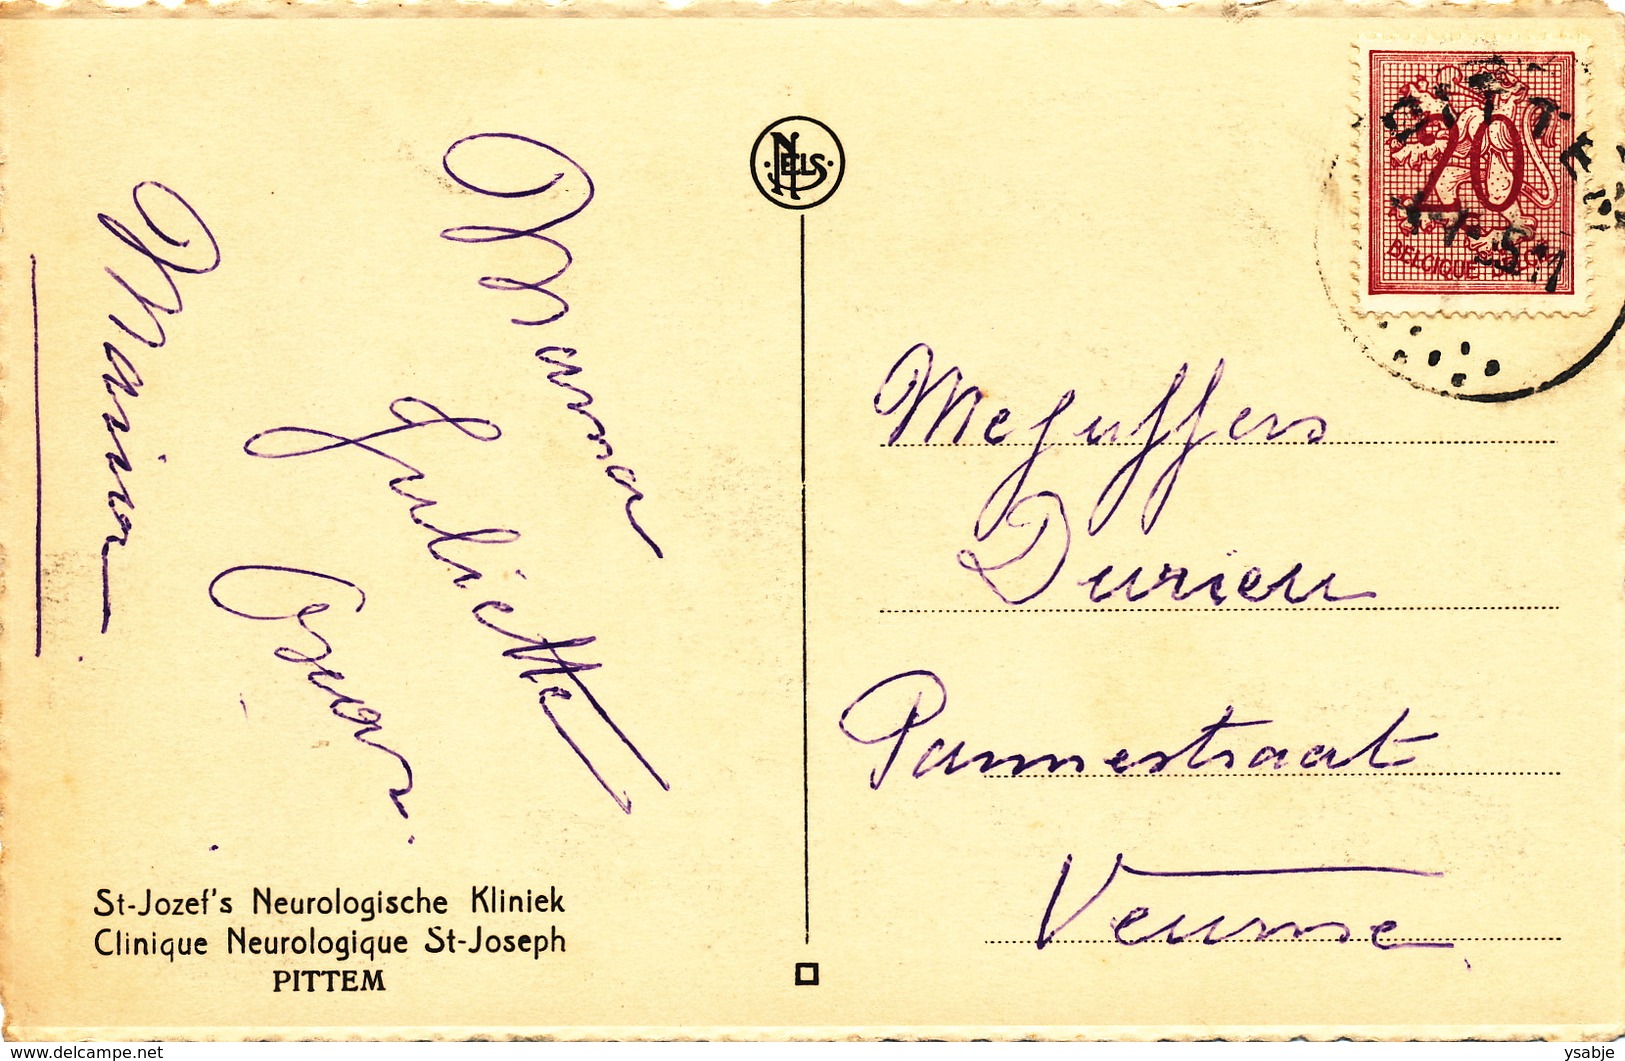 Mama
Juliette
Oscar
Maria
St-Jozef's Neurologische Kliniek
Clinique Neurologique St-Joseph
PITTEM
NELS
20
BELGIQUE
PITTEM
Mejuffers
Durieu
Pannestraat
Veurne
www.delcampe.net
ysabje